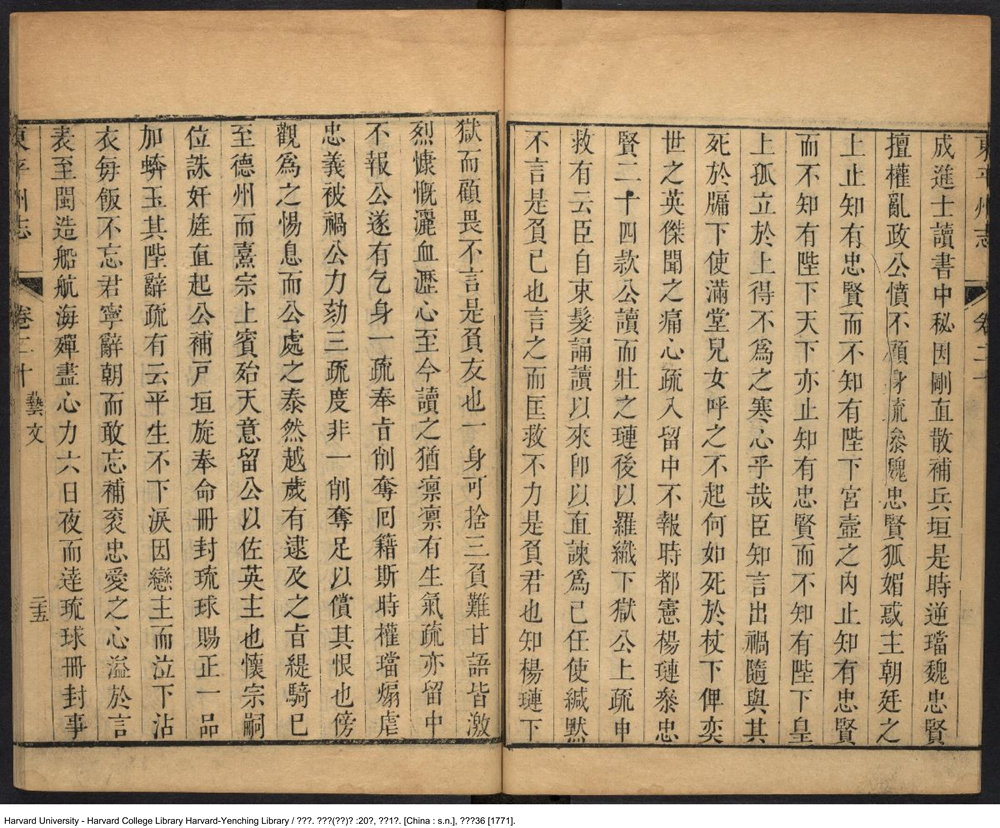 東平州志
卷二十
成進士讀書中秘因剛直散補兵垣是時逆璫魏忠賢
擅權亂政公憤不顧身疏叅魏忠賢狐媚惑主朝廷之
上止知有忠賢而不知有陛下宮壼之內止知有忠賢
而不知有陛下天下亦止知有忠賢而不知有陛下皇
上孤立於上得不爲之寒心乎哉臣知言出禍隨與其
死於牖下使滿堂兒女呼之不起何如死於杖下俾奕
世之英傑聞之痛心疏入留中不報時都憲楊璉叅忠
賢二十四款公讀而壯之璉後以羅織下獄公上疏申
救有云臣自束髮誦讀以來卽以直諫爲己任使緘默
不言是負已也言之而匡救不力是負君也知楊璉下
獄而顧畏不言是負友也一身可捨三負難甘語皆激
烈慷慨灑血瀝心至今讀之猶凛凛有生氣疏亦留中
不報公遂有乞身一疏奉旨削奪囘籍斯時權璫煽虐
忠義被禍公力劾三疏度非一削奪足以償其恨也傍
觀爲之惕息而公處之泰然越歲有逮及之旨緹騎已
至德州而熹宗上賓殆天意留公以佐英主也懷宗嗣
位誅奸旌直起公補戶垣旋奉命冊封琉球賜正一品
加蟒玉其陛辭疏有云平生不下淚因戀主而泣下沾
衣每飯不忘君寧辭朝而敢忘補袞忠愛之心溢於言
表至閩造船航海殫盡心力六日夜而達琉球冊封事
東平州志
卷二十
藝文
二五
Harvard University - Harvard College Library Harvard-Yenching Library / ???. ???(??)? :20?, ??1?. [China : s.n.], ???36 [1771].